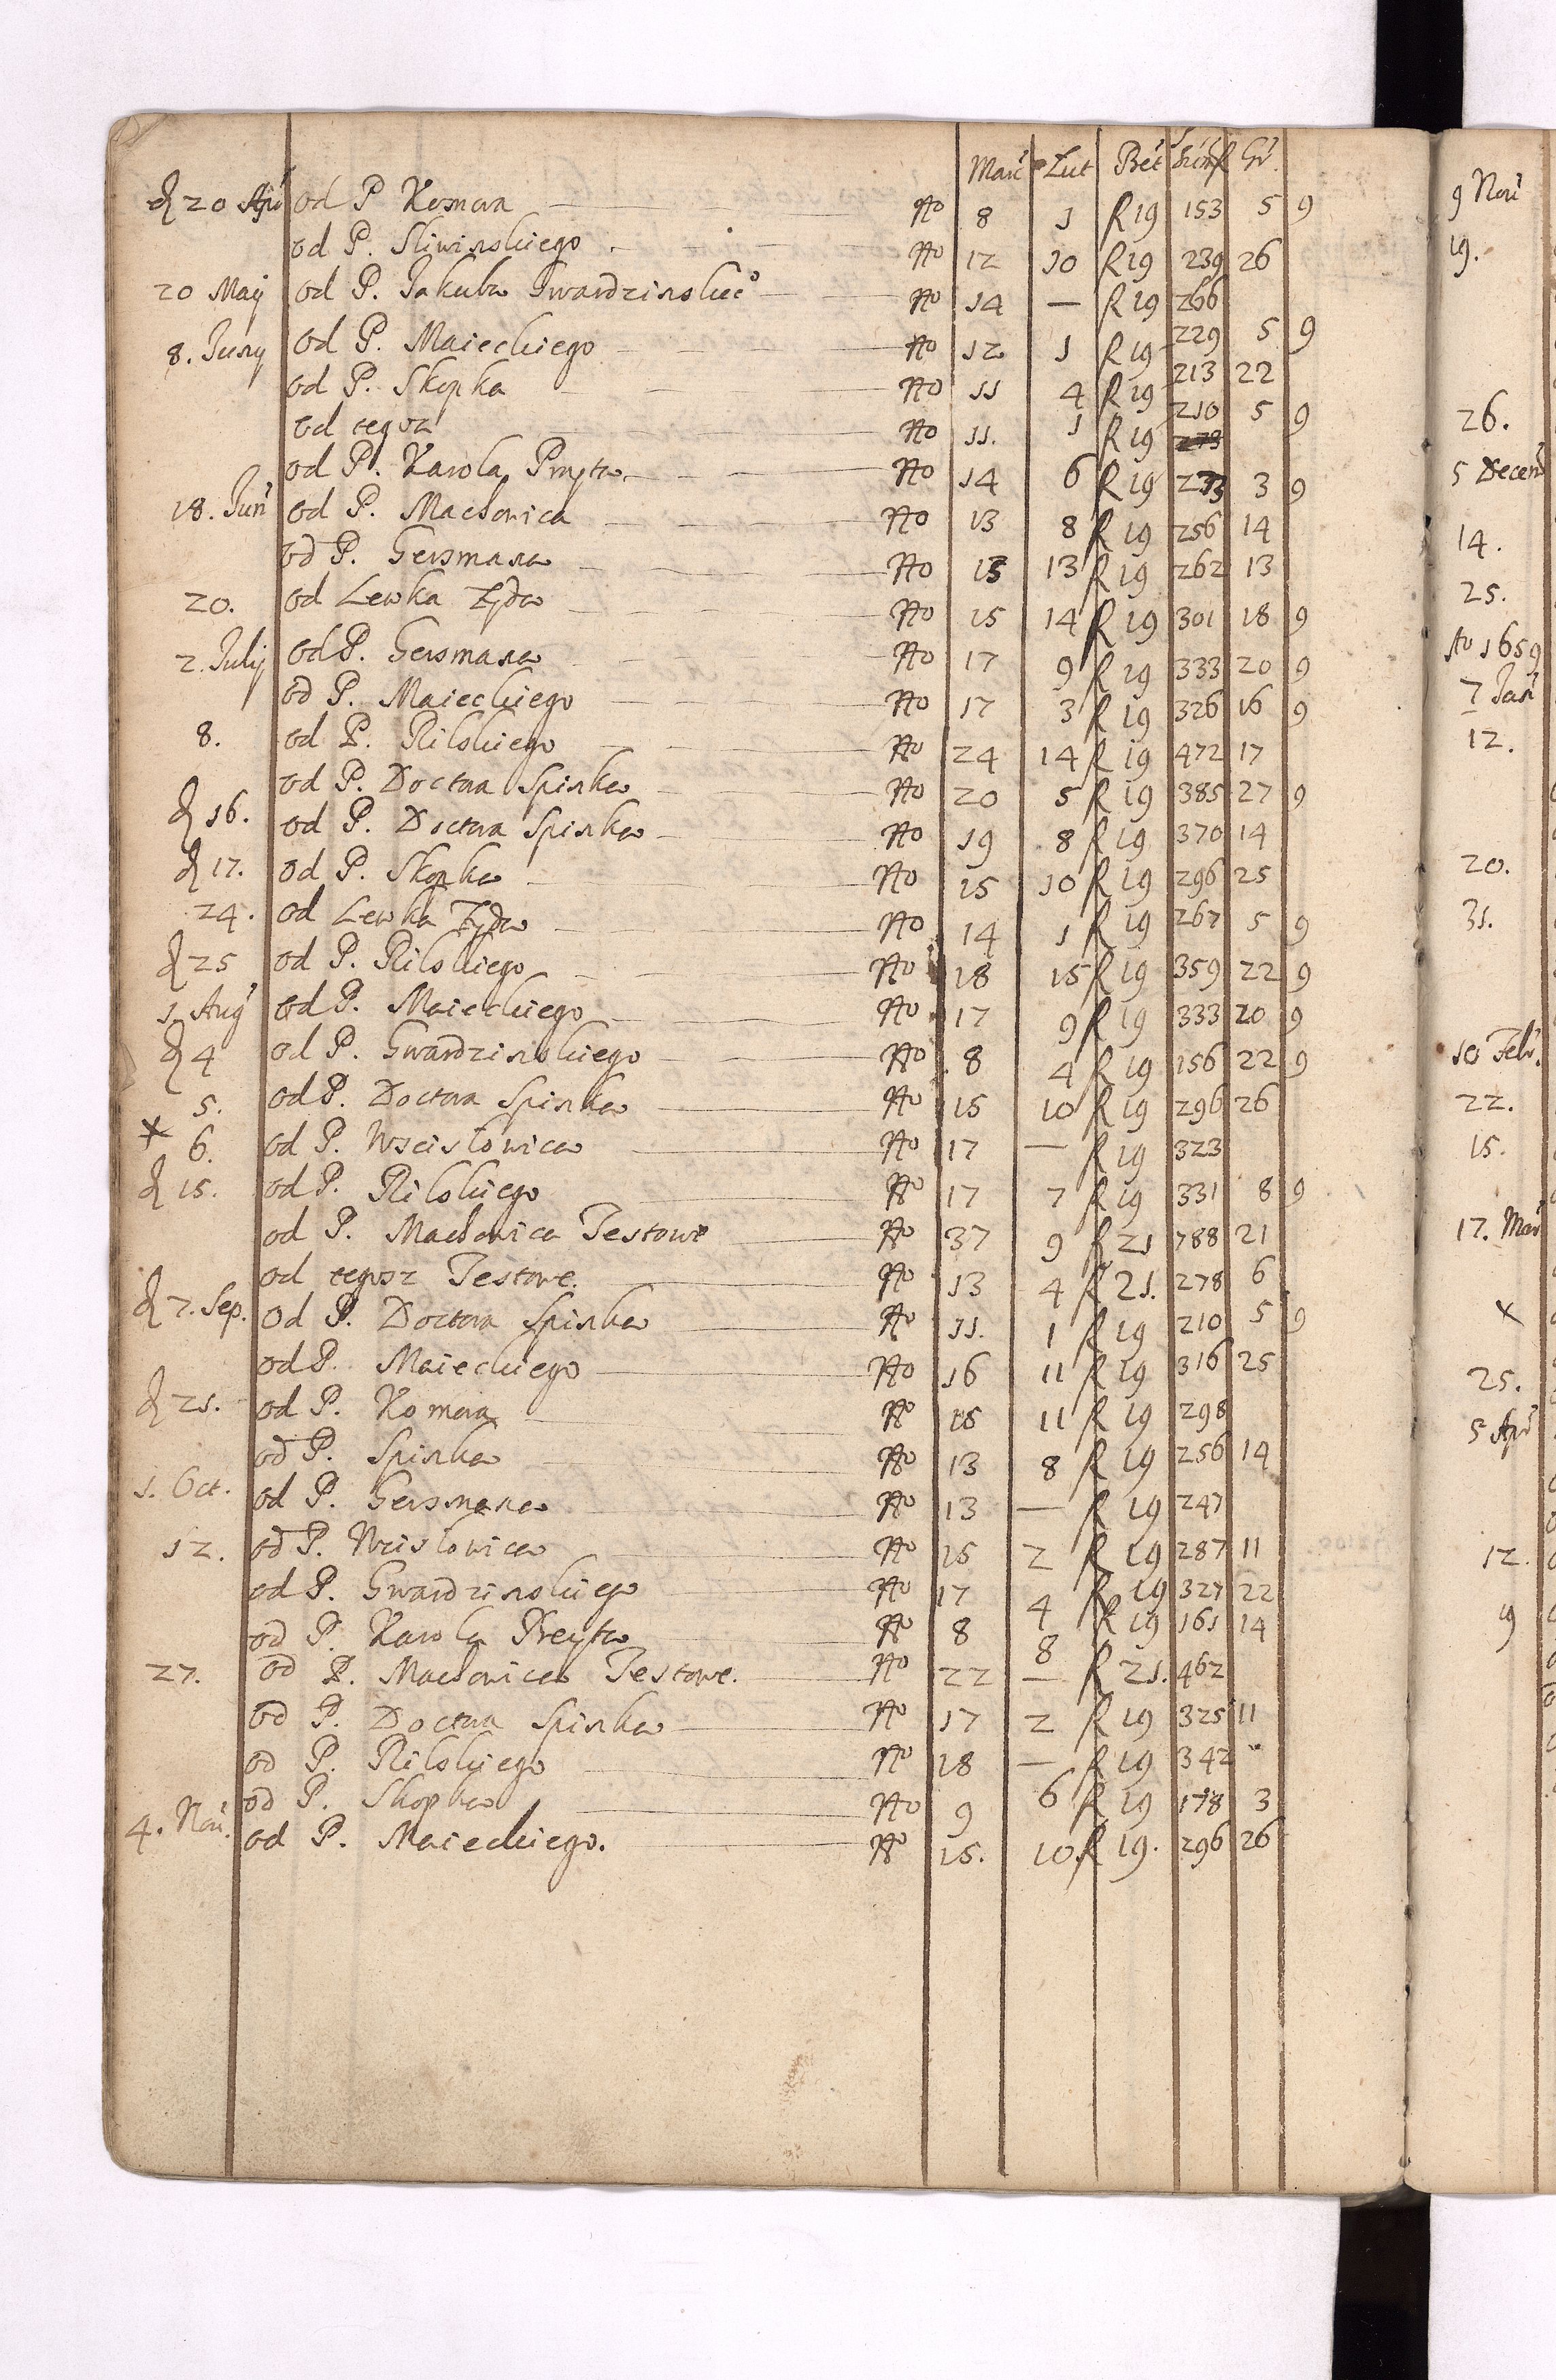 Marc Lut Bret Sum fl Gr.
20 Apr od P Komora No 8 1 R 19 153 5 9
od P. Sliwinskiego No 12 10 R 19 239 26
20 Maij od P. Jakuba Gwardzinskieo No 14 — R 19 266
8. Juny od P. Maieckiego No 12 1 R 19 229 5 9
od P. Skopka No 11 4 R 19 213 22
od tegoz No 11. 1 R 19 210 5 9
od P. Karola No 14 6 R 19 273 3 9
18. Jun od P. Machowica No 13 8 R 19 256 14
od P. Gersmana No 13 13 R 19 262 13
20. od Lewka Zyda No 15 14 R 19 301 18 9
2. July od P. Gersmana No 17 9 R 19 333 20 9
od P. Maieckiego No 17 3 R 19 326 16 9
8. od P. Rilskiego No 24 14 R 19 472 17
od P. Doctora Spinka No 20 5 R 19 385 27 9
16. od P. Doctora Spinka No 19 8 R 19 370 14
17. od P. Skopka No 15 10 R 19 296 25
24. od Lewka Zyda No 14 1 R 19 267 5 9
25 od P. Rilskiego No 18 15 R 19 359 22 9
1. Aug od P. Maieckiego No 17 9 R 19 333 20 9
4 od P. Gwardzinskiego No 8 4 R 19 156 22 9
5. od P. Doctora Spinka No 15 10 R 19 296 26
x 6. od P. Wscislowica No 17 — R 19 323
15. od P. Rilskiego No 17 7 R 19 331 8 9
od P. Machowica Testowe No 37 9 R 21 788 21
od tegosz Testowe. No 13 4 R 21. 278 6
7. Sep. Od P. Doctora Spinka No 11. 1 R 19 210 5 9
od P. Maieckiego No 16 11 R 19 316 25
21. od P. Komora No 15 11 R 19 298
od P. Spinka No 13 8 R 19 256 14
1. Oct. od P. Gersmana No 13 — R 19 247
12. od P. Wscislowica No 15 2 R 19 287 11
od P. Gwardzinskiego No 17 4 R 19 327 22
od P. Karola Preyta No 8 8 R 19 161 14
27. od P. Machowica Testowe. No 22 — R 21. 462
od P. Doctora Spinka No 17 2 R 19 325 11
od P. Rilskiego No 18 — R 19 342
od P. Skopka No 9 6 R 19 178 3
4. Nou. od P. Maieckiego. No 15. 10. R 19. 296 26
9 Nou
19.
26.
5 Decem
14.
25.
Ao 1659
7 Jan
12.
20.
31.
10 Febr.
22.
15.
17. Mar
x
25.
5 Apr
12.
19